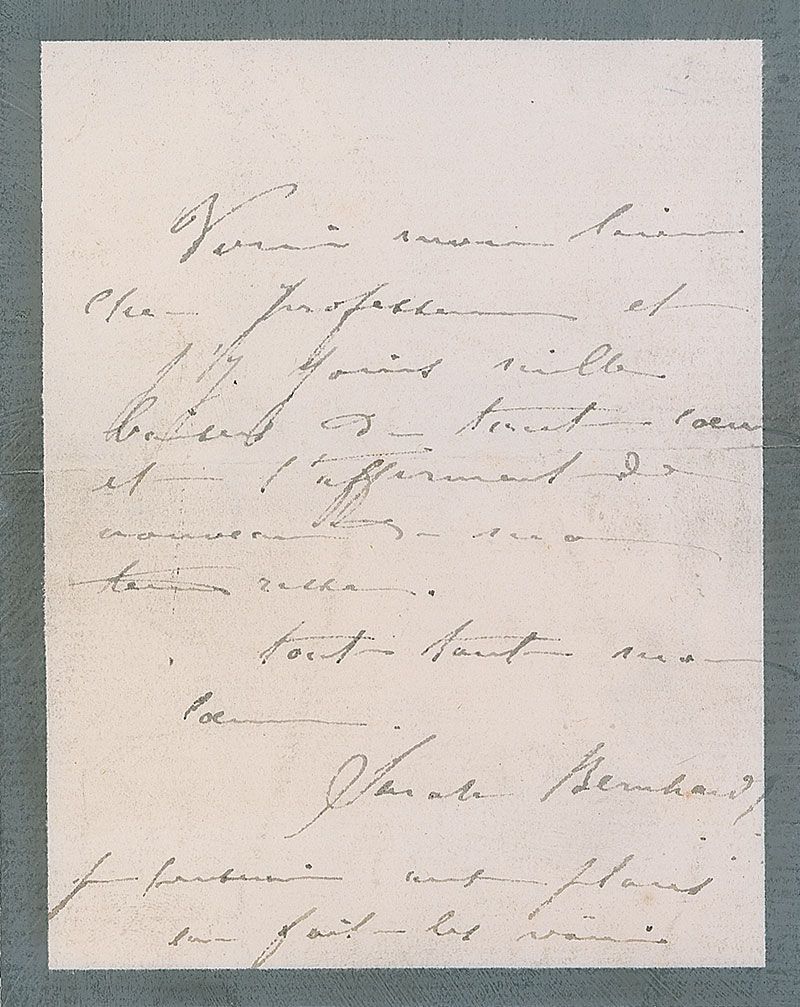 Voici mon bien
cher professeur et
j'y joins mille
baisers de tout cœur
et l'affirment de
nouveau de ma
tendresse.
tout tout mon
cœur
Sarah Bernhardt
plaisir
fait les